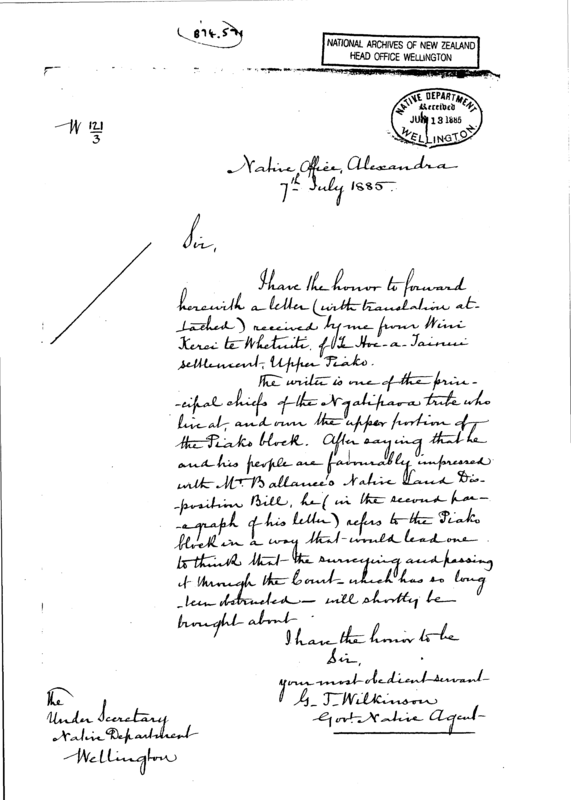 874.57
NATIONAL ARCHIVES OF NEW ZEALAND
HEAD OFFICE WELLINGTON
NATIVE DEPARTMENT
Received
JUL 13 1885
WELLINGTON.
W 121/3
Native Office, Alexandra
7th July 1885.
Sir,
I have the honor to forward
herewith a letter (with translation at-
-tached) received by me from Wini
Kerei te Whetuiti, of Te Hoe-a-Tainui
settlement, Upper Piako.
The writer is one of the prin-
-cipal chiefs of the Ngatipaoa tribe who
live at, and own the upper portion of
the Piako block. After saying that he
and his people are favourably impressed
with Mr. Ballance's Native Land Dis-
-position Bill, he (in the second par-
-agraph of his letter) refers to the Piako
block in a way that would lead one
to think that the surveying and passing
it through the Court - which has so long
been obstructed - will shortly be
brought about
I have the honor to be
Sir,
your most obedient servant
G. T. Wilkinson
Govt. Native Agent
The
Under Secretary
Native Department
Wellington